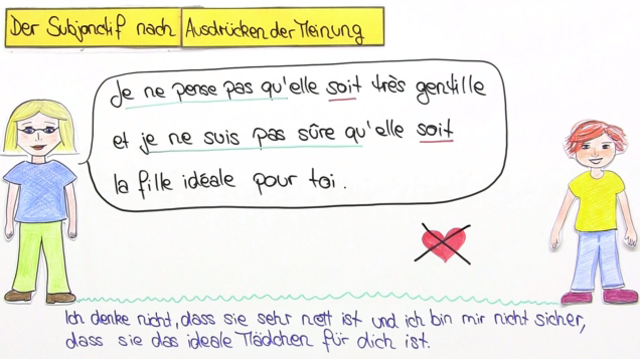 Der Subjonctif nach Ausdrücken der Meinung
Je ne pense pas qu'elle soit très gentille
et je ne suis pas sûre qu'elle soit
la fille idéale pour toi.
Ich denke nicht, dass sie sehr nett ist und ich bin mir nicht sicher,
dass sie das ideale Mädchen für dich ist.